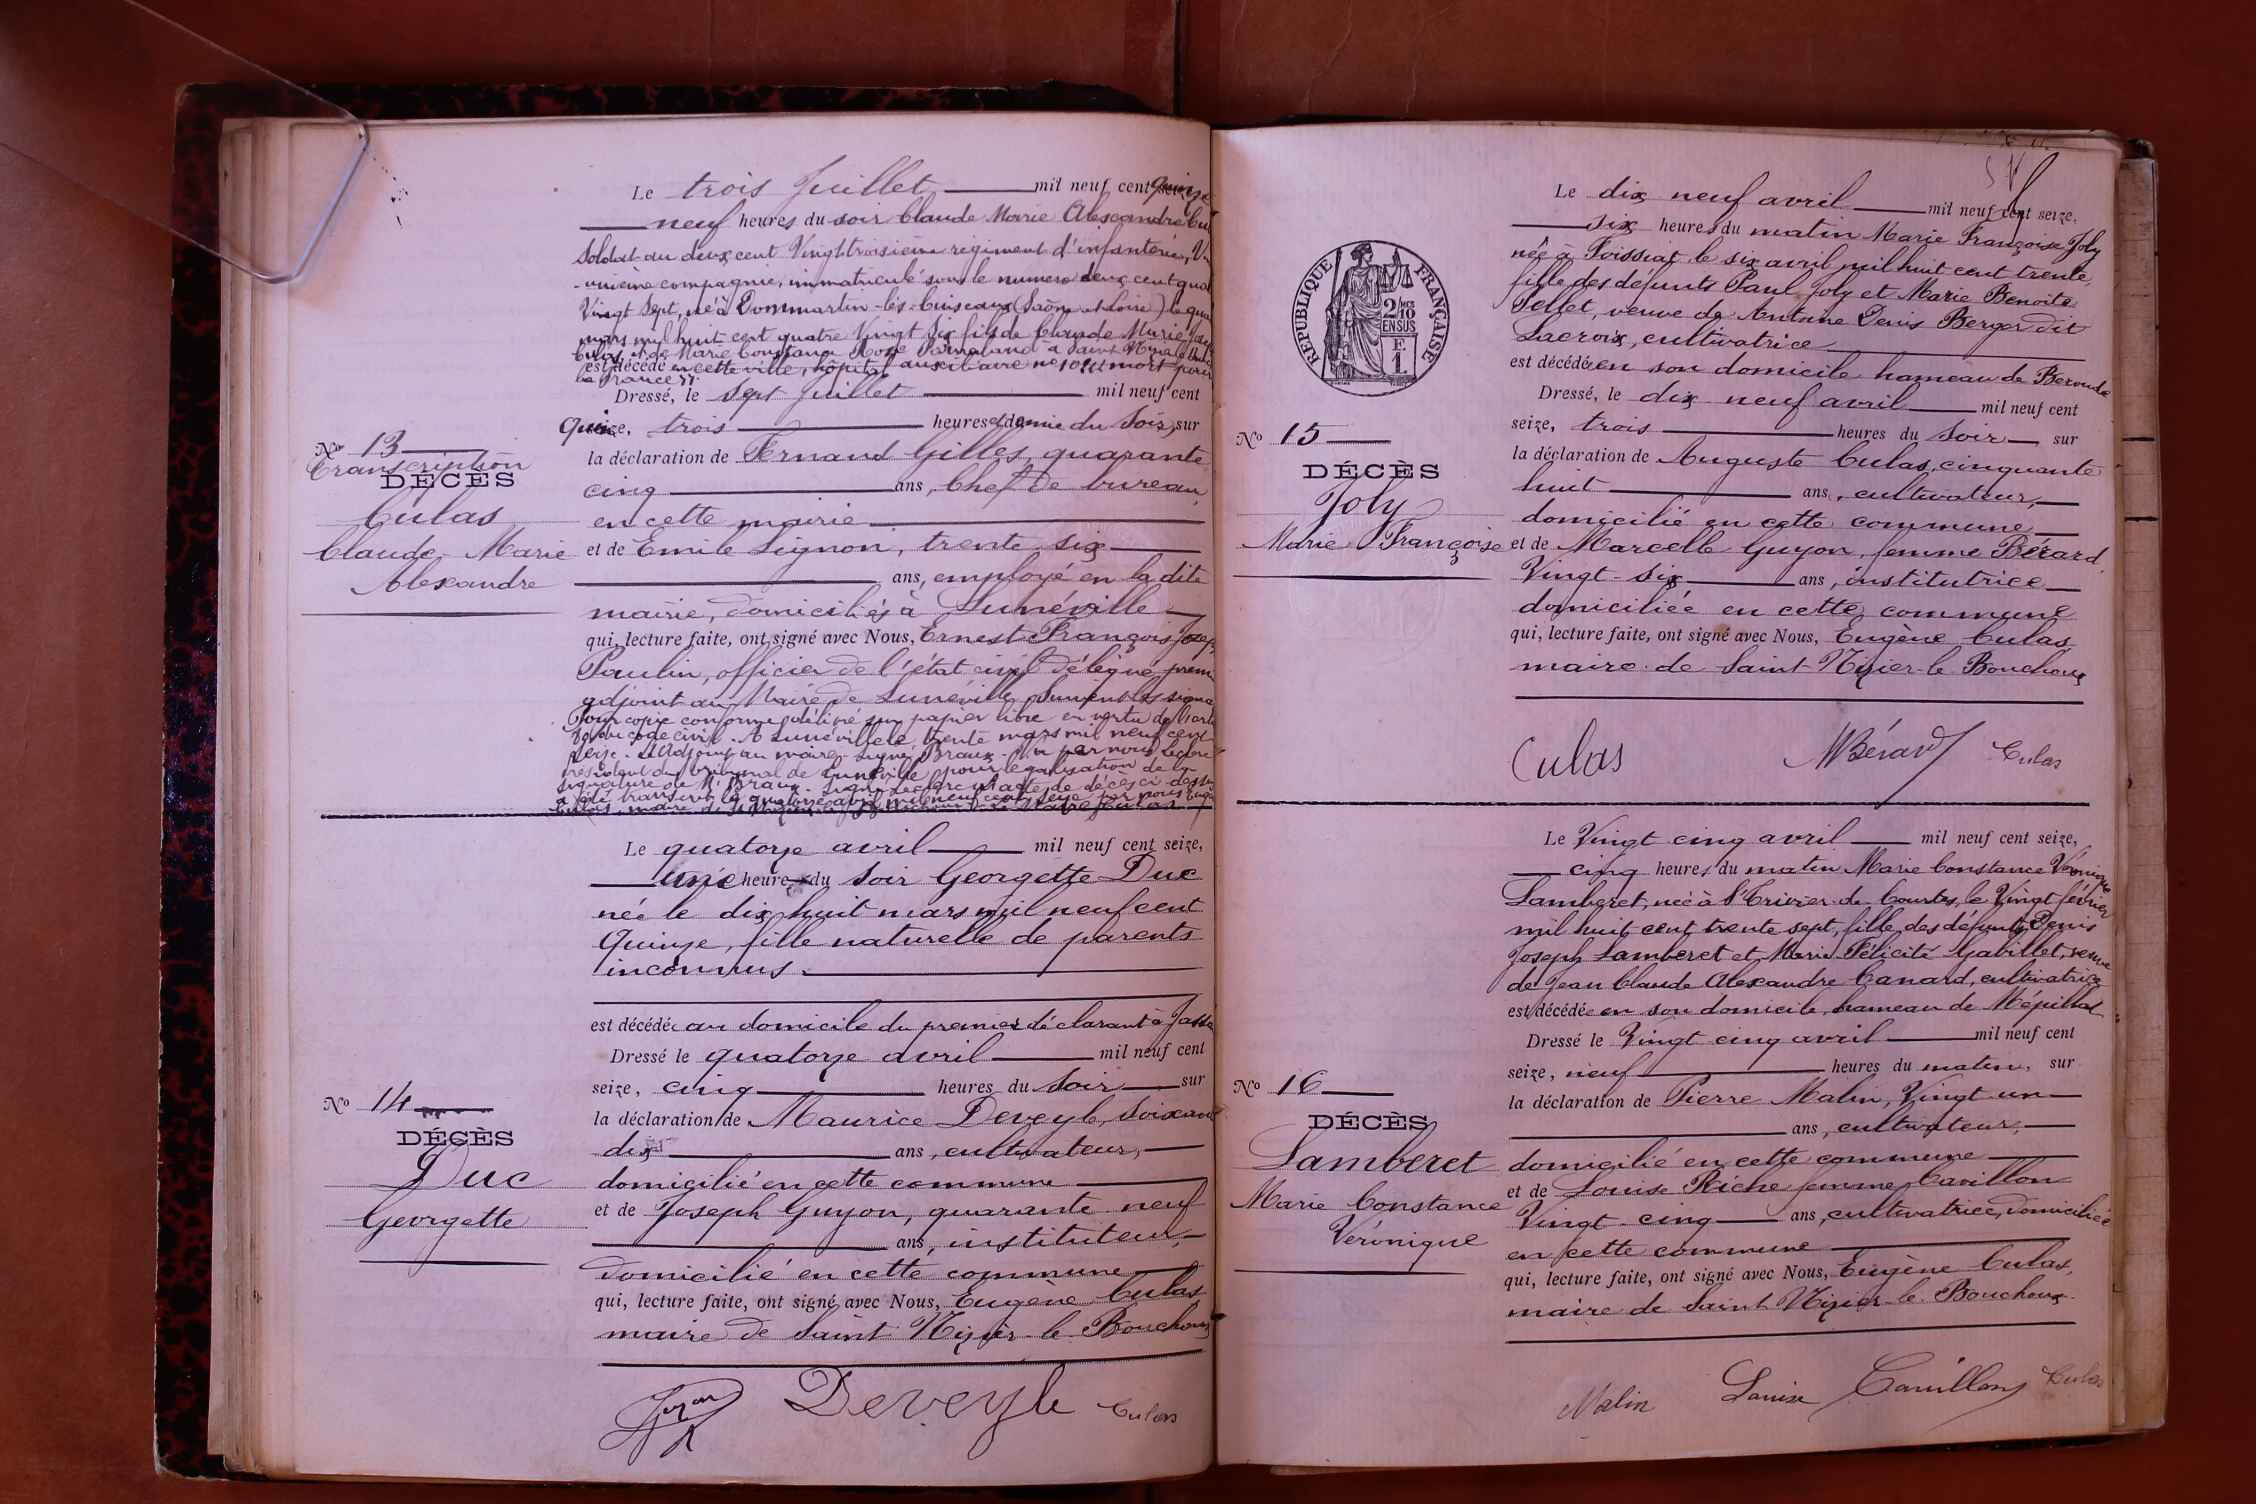 Le trois Juillet mil neuf cent quinze
neuf heures du soir Claude Marie Alexandre
Soldat au deux cent Vingt troisième régiment d'infanterie,
unième compagnie, immatriculé sous le numéro deux cent
Vingt Sept, né à Dommartin-lès-Cuiseaux (Saône et Loire) le
mars mil huit cent quatre Vingt Six fils de Claude Marie
Culas et de Marie Constance Rose à Saint Nizier
est décédé en cette ville, hôpital auxiliaire n° mort pour
la France
Dressé, le Sept Juillet mil neuf cent
quinze, trois heures et demie du Soir, sur
la déclaration de Fernand Gilles, quarante
cinq ans, Chef de bureau
en cette mairie
et de Emile Lignon, trente six
ans, employé en la dite
mairie, domiciliés à Lunéville
qui, lecture faite, ont signé avec Nous, Ernest François
Paulin, officier de l'état civil délégué
adjoint au Maire de Lunéville, Suivent les
Pour copie conforme délivré sur papier libre en vertu de
du code civil. A Lunéville le trente mars mil neuf cent
seize. L'Adjoint au maire, Signé Braux. Vu par nous
président du tribunal de Lunéville pour légalisation de la
signature de M. Braux. acte de décès ci-dessus
a été transcrit le quatorze avril mil neuf cent seize par nous
Culas, maire de St Nizier le Bouchoux
N° 13
Transcription
DÉCÈS
Culas
Claude Marie
Alexandre
Le quatorze avril mil neuf cent seize,
une heure du Soir Georgette Duc
née le dix huit mars mil neuf cent
Quinze, fille naturelle de parents
inconnus.
est décédée au domicile du premier déclarant à
Dressé le quatorze avril mil neuf cent
seize, cinq heures du Soir sur
la déclaration de Maurice Deveyle, Soixante
dix ans, cultivateur,
domicilié en cette commune
et de Joseph Guyon, quarante neuf
ans, instituteur,
domicilié en cette commune
qui, lecture faite, ont signé avec Nous, Eugène Culas
maire de Saint Nizier-le-Bouchoux
N° 14
DÉCÈS
Duc
Georgette
Guyon Deveyle Culas
Le dix neuf avril mil neuf cent seize,
six heures du matin Marie Françoise Joly
née à Foissiat le six avril mil huit cent trente,
fille des défunts Paul Joly et Marie Benoite
Pellet, veuve de Antoine Denis Berger dit
Lacroix, cultivatrice
est décédée en son domicile hameau de
Dressé, le dix neuf avril mil neuf cent
seize, trois heures du Soir sur
la déclaration de Auguste Culas, cinquante
huit ans, cultivateur,
domicilié en cette commune
et de Marcelle Guyon, femme Bérard
Vingt-Six ans, institutrice
domiciliée en cette commune
qui, lecture faite, ont signé avec Nous, Eugène Culas
maire de Saint Nizier-le-Bouchoux
RÉPUBLIQUE FRANÇAISE
2/10 EN SUS
F. 1
N° 15
DÉCÈS
Joly
Marie Françoise
Culas MBérard Culas
Le Vingt cinq avril mil neuf cent seize,
cinq heures du matin Marie Constance Véronique
Lamberet, née à St Trivier-de-Courtes, le Vingt février
mil huit cent trente sept, fille des défunts Denis
Joseph Lamberet et Marie Félicité Gabillet, veuve
de Jean Claude Alexandre Canard, cultivatrice
est décédée en son domicile, hameau de Mépillat
Dressé le Vingt cinq avril mil neuf cent
seize, neuf heures du matin, sur
la déclaration de Pierre Malin, Vingt un
ans, cultivateur,
domicilié en cette commune
et de Louise Riche femme Cavillon
Vingt-cinq ans, cultivatrice, domiciliée
en cette commune
qui, lecture faite, ont signé avec Nous, Eugène Culas,
maire de Saint Nizier-le-Bouchoux.
N° 16
DÉCÈS
Lamberet
Marie Constance
Véronique
Malin Louise Cavillon Culas